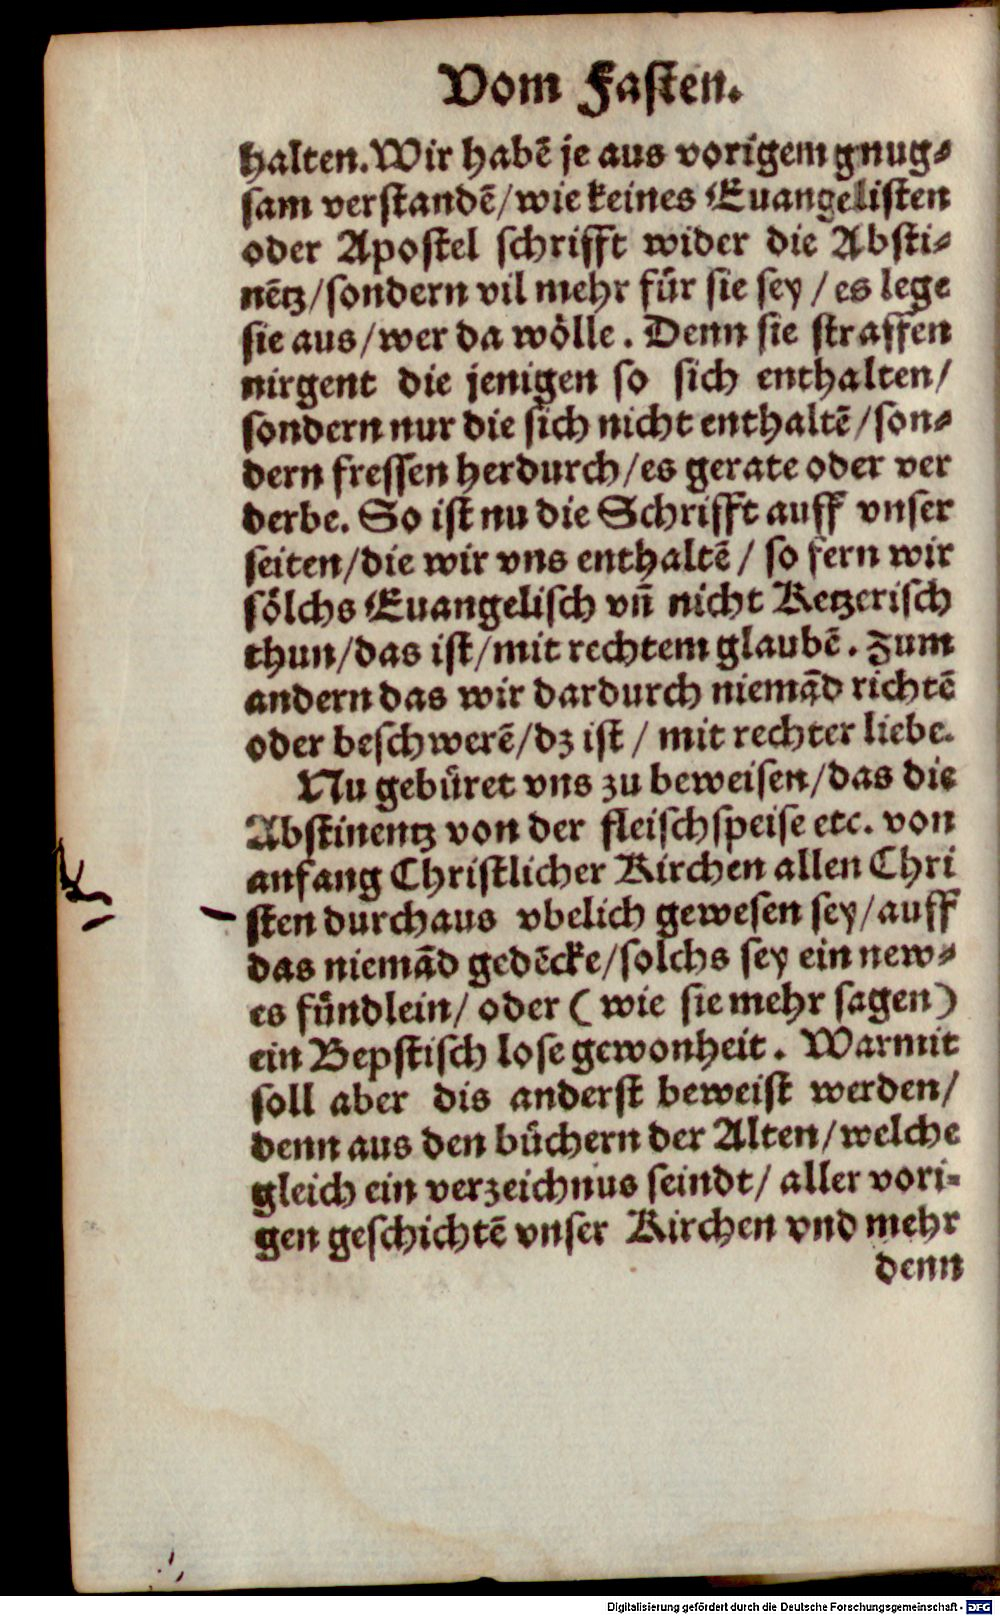 Vom Fasten.
halten. Wir habẽ je aus vorigem gnug⸗
sam verstandẽ/ wie keines Euangelisten
oder Apostel schrifft wider die Absti⸗
nẽtz/ sondern vil mehr fuͤr sie sey / es lege
sie aus/ wer da woͤlle. Denn sie straffen
nirgent die jenigen so sich enthalten/
sondern nur die sich nicht enthaltẽ/ son⸗
dern fressen herdurch/ es gerate oder ver
derbe. So ist nu die Schrifft auff vnser
seiten/ die wir vns enthaltẽ / so fern wir
soͤlchs Euangelisch vñ nicht Ketzerisch
thun/ das ist/ mit rechtem glaubẽ. Zum
andern das wir dardurch niemãd richtẽ
oder beschwerẽ/ dz ist / mit rechter liebe.
Nu gebuͤret vns zu beweisen/ das die
Abstinentz von der fleischspeise etc. von
anfang Christlicher Kirchen allen Chri
sten durchaus vbelich gewesen sey/ auff
das niemãd gedẽcke/ solchs sey ein new⸗
es fuͤndlein/ oder ( wie sie mehr sagen)
ein Bepstisch lose gewonheit. Warmit
soll aber dis anderst beweist werden/
denn aus den buͤchern der Alten/ welche
gleich ein verzeichnus seindt/ aller vori⸗
gen geschichtẽ vnser Kirchen vnd mehr
denn
Digitalisierung gefördert durch die Deutsche Forschungsgemeinschaft - DFG